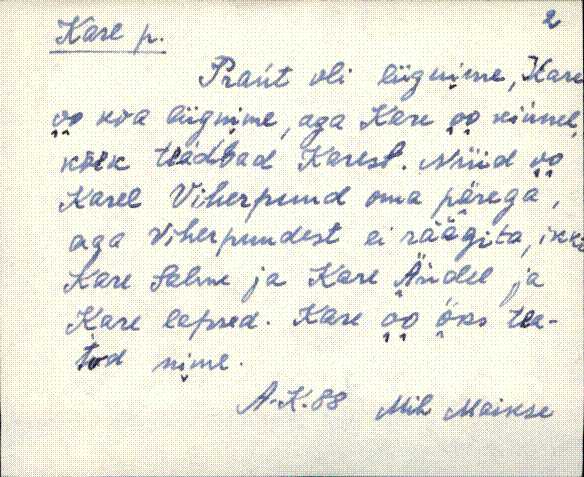 2
Kare p.
Prańt oli liignime, Kare
o̤o̤ kõa liignime, aga Kare o̤o̤ kinnel,
kõik teadvad Karest. Nüid o̤o̤
Karel Viherpuud oma pärega,
aga Viherpuudest ei räägita, ikki
Kare Salme ja Kare Ändel ja
Kare lapsed. Kare o̤o̤ öks tea-
tod nime.
A-K. 88 Mih Maikse